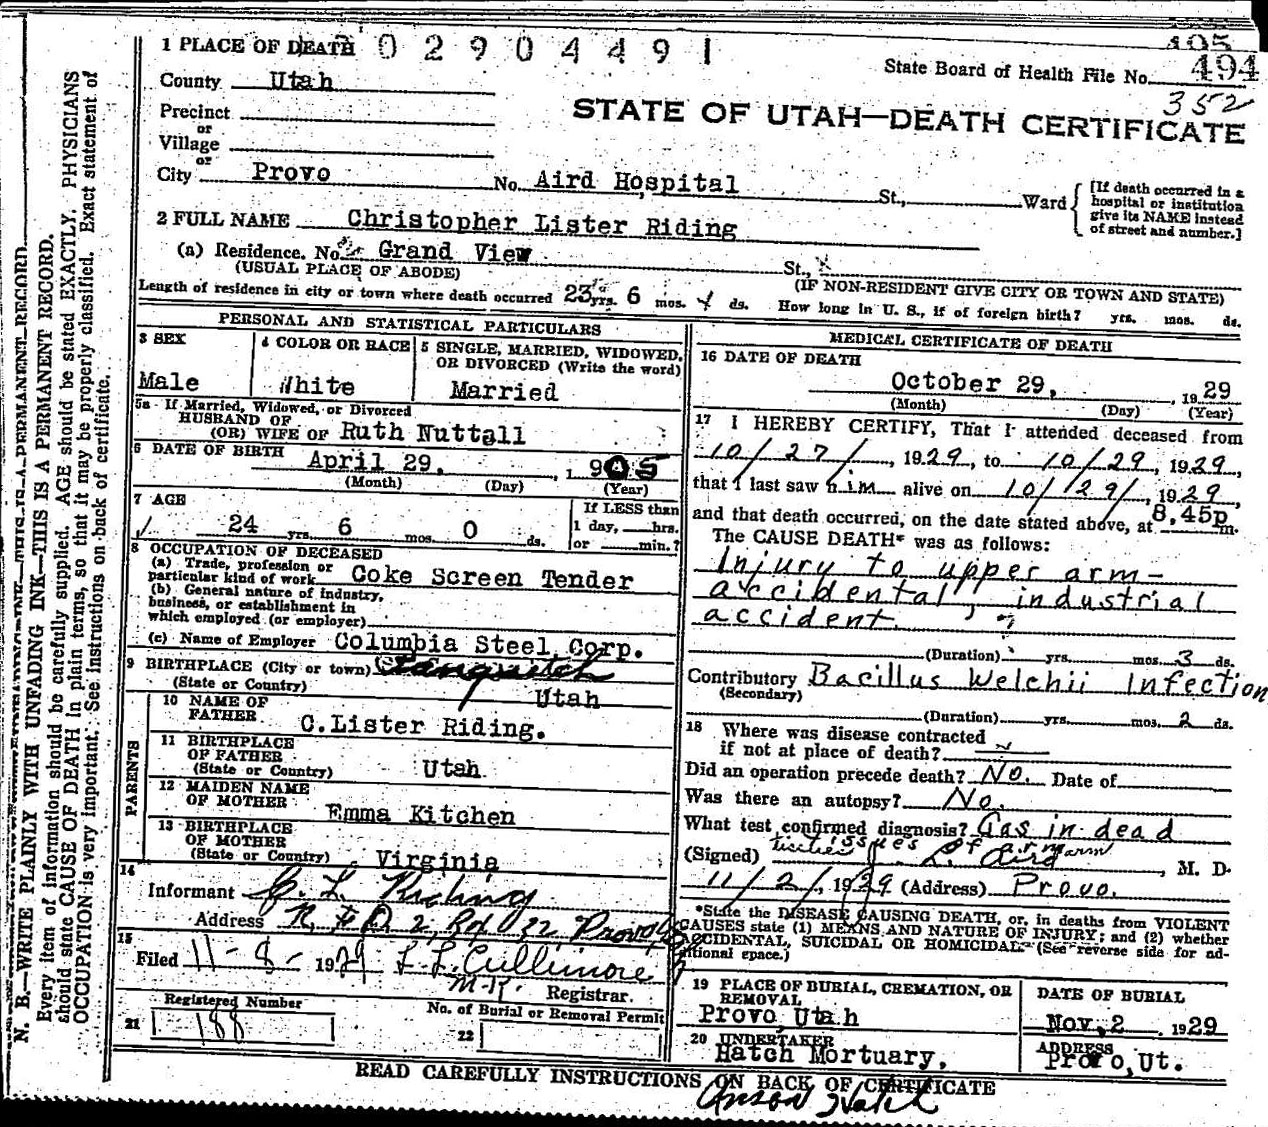 1 PLACE OF DEATH 02904491
495
State Board of Health File No. 494
352
County Utah
STATE OF UTAH—DEATH CERTIFICATE
Precinct
or
Village
or
City Provo No. Aird Hospital St., Ward
[If death occurred in a hospital or institution give its NAME instead of street and number.]
2 FULL NAME Christopher Lister Riding
(a) Residence. No. Grand View St.,
(USUAL PLACE OF ABODE) (IF NON-RESIDENT GIVE CITY OR TOWN AND STATE)
Length of residence in city or town where death occurred 23 yrs. 6 mos. ds. How long in U. S., if of foreign birth? yrs. mos. ds.
PERSONAL AND STATISTICAL PARTICULARS
3 SEX
Male
4 COLOR OR RACE
White
5 SINGLE, MARRIED, WIDOWED, OR DIVORCED (Write the word)
Married
5a If Married, Widowed, or Divorced
HUSBAND OF
(OR) WIFE OF Ruth Nuttall
6 DATE OF BIRTH April 29, 1905
(Month) (Day) (Year)
7 AGE
24 yrs. 6 mos. 0 ds.
If LESS than
1 day, hrs.
or min.?
8 OCCUPATION OF DECEASED
(a) Trade, profession or
particular kind of work Coke Screen Tender
(b) General nature of industry,
business, or establishment in
which employed (or employer)
(c) Name of Employer Columbia Steel Corp.
9 BIRTHPLACE (City or town) Panguitch
(State or Country) Utah
PARENTS
10 NAME OF
FATHER C. Lister Riding.
11 BIRTHPLACE
OF FATHER
(State or Country) Utah
12 MAIDEN NAME
OF MOTHER Emma Kitchen
13 BIRTHPLACE
OF MOTHER
(State or Country) Virginia
14
Informant C. L. Riding
Address R.F.D 2, Box 22 Provo
15
Filed 11-8- 1929 L L Cullimore
M.R. Registrar.
Registered Number
21 188
No. of Burial or Removal Permit
22
MEDICAL CERTIFICATE OF DEATH
16 DATE OF DEATH
October 29, 1929
(Month) (Day) (Year)
17 I HEREBY CERTIFY, That I attended deceased from
10/27/, 1929, to 10/29, 1929,
that I last saw him alive on 10/29/, 1929,
and that death occurred, on the date stated above, at 8,45p m.
The CAUSE DEATH* was as follows:
Injury to upper arm—
accidental, industrial
accident.
(Duration) yrs. mos. 3 ds.
Contributory Bacillus Welchii Infection
(Secondary)
(Duration) yrs. mos. 2 ds.
18 Where was disease contracted
if not at place of death?
Did an operation precede death? No. Date of
Was there an autopsy? No.
What test confirmed diagnosis? Gas in dead
tissues of arm
(Signed) Aird, M. D.
11/2/, 1929 (Address) Provo.
*State the DISEASE CAUSING DEATH, or, in deaths from VIOLENT
CAUSES state (1) MEANS AND NATURE OF INJURY; and (2) whether
ACCIDENTAL, SUICIDAL OR HOMICIDAL. (See reverse side for ad-
ditional space.)
19 PLACE OF BURIAL, CREMATION, OR
REMOVAL
Provo, Utah
DATE OF BURIAL
Nov, 2 1929
20 UNDERTAKER
Hatch Mortuary,
ADDRESS
Provo, Ut.
READ CAREFULLY INSTRUCTIONS ON BACK OF CERTIFICATE
Anson Hatch
N. B.—WRITE PLAINLY WITH UNFADING INK—THIS IS A PERMANENT RECORD.
Every item of information should be carefully supplied. AGE should be stated EXACTLY. PHYSICIANS
should state CAUSE OF DEATH in plain terms, so that it may be properly classified. Exact statement of
OCCUPATION is very important. See instructions on back of certificate.